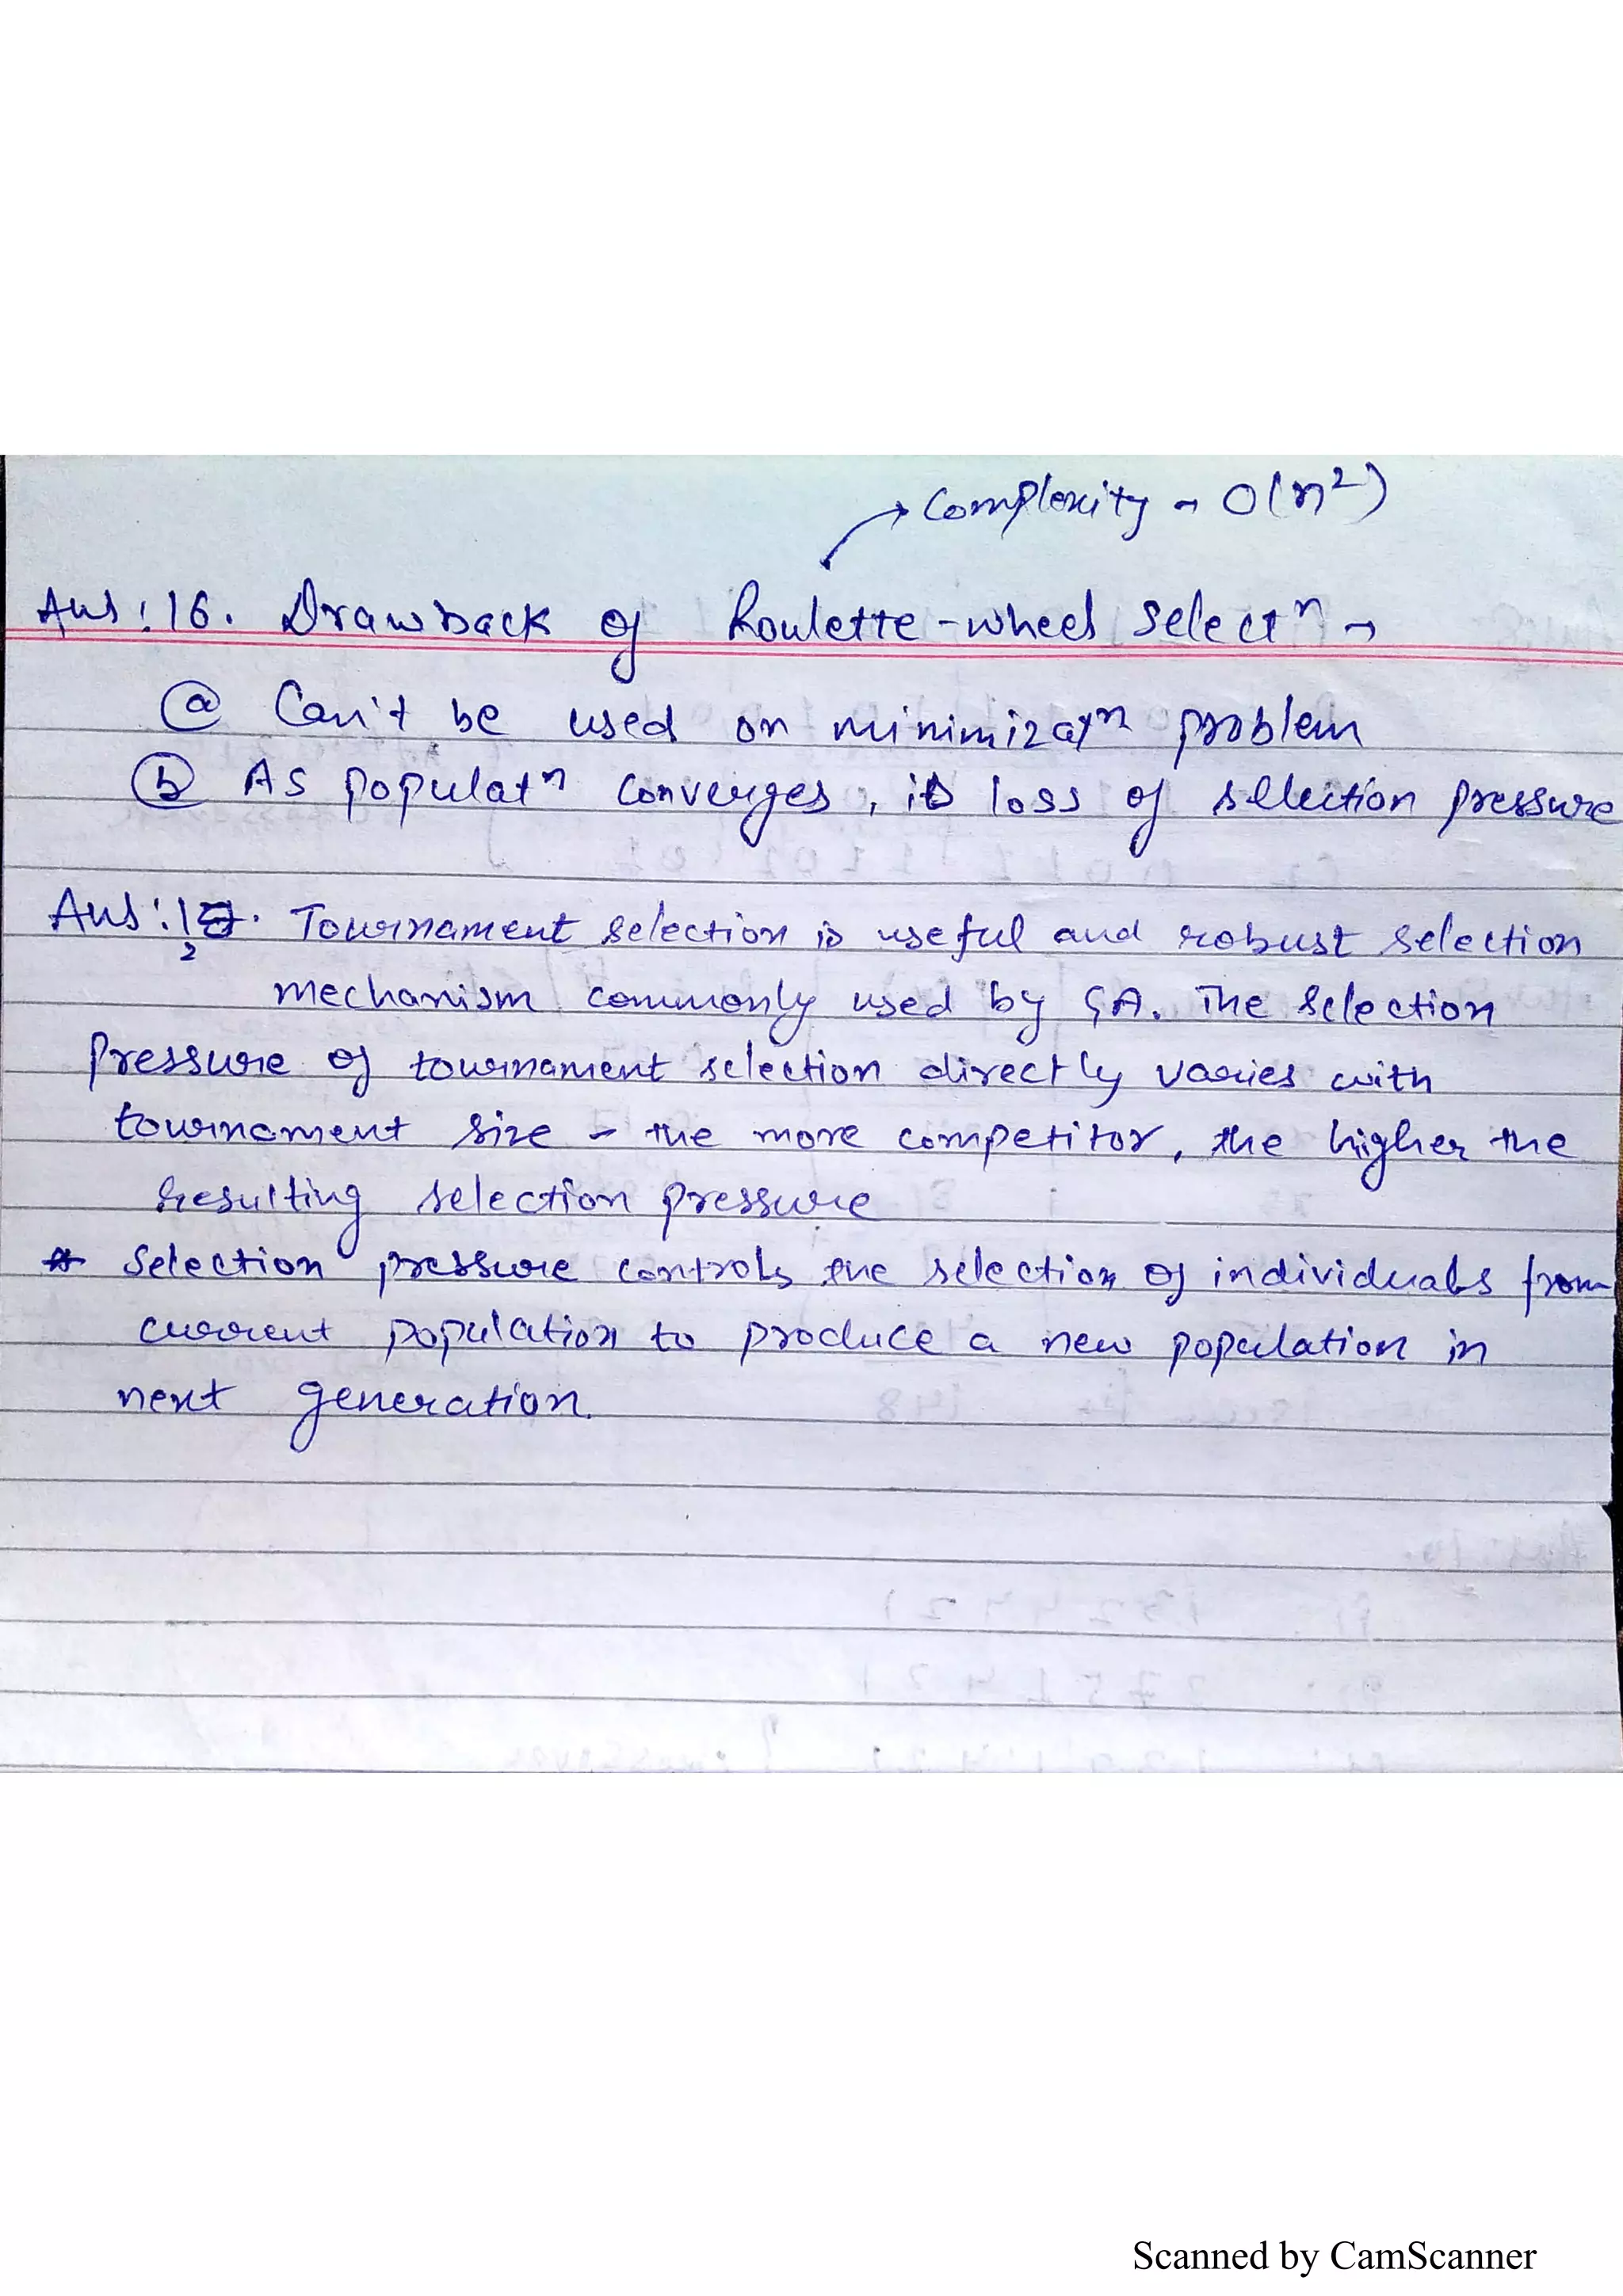 Complexity - O(n²)
Ans:16. Drawback of Roulette-wheel selectⁿ →
ⓐ Can't be used on minimizatⁿ problem
ⓑ As populatⁿ converges, its loss of selection pressure
Ans:12. Tournament selection is useful and robust selection
mechanism commonly used by GA. The selection
pressure of tournament selection directly varies with
tournament size - the more competitor, the higher the
resulting selection pressure
* Selection pressure controls the selection of individuals from
current population to produce a new population in
next generation.
Scanned by CamScanner